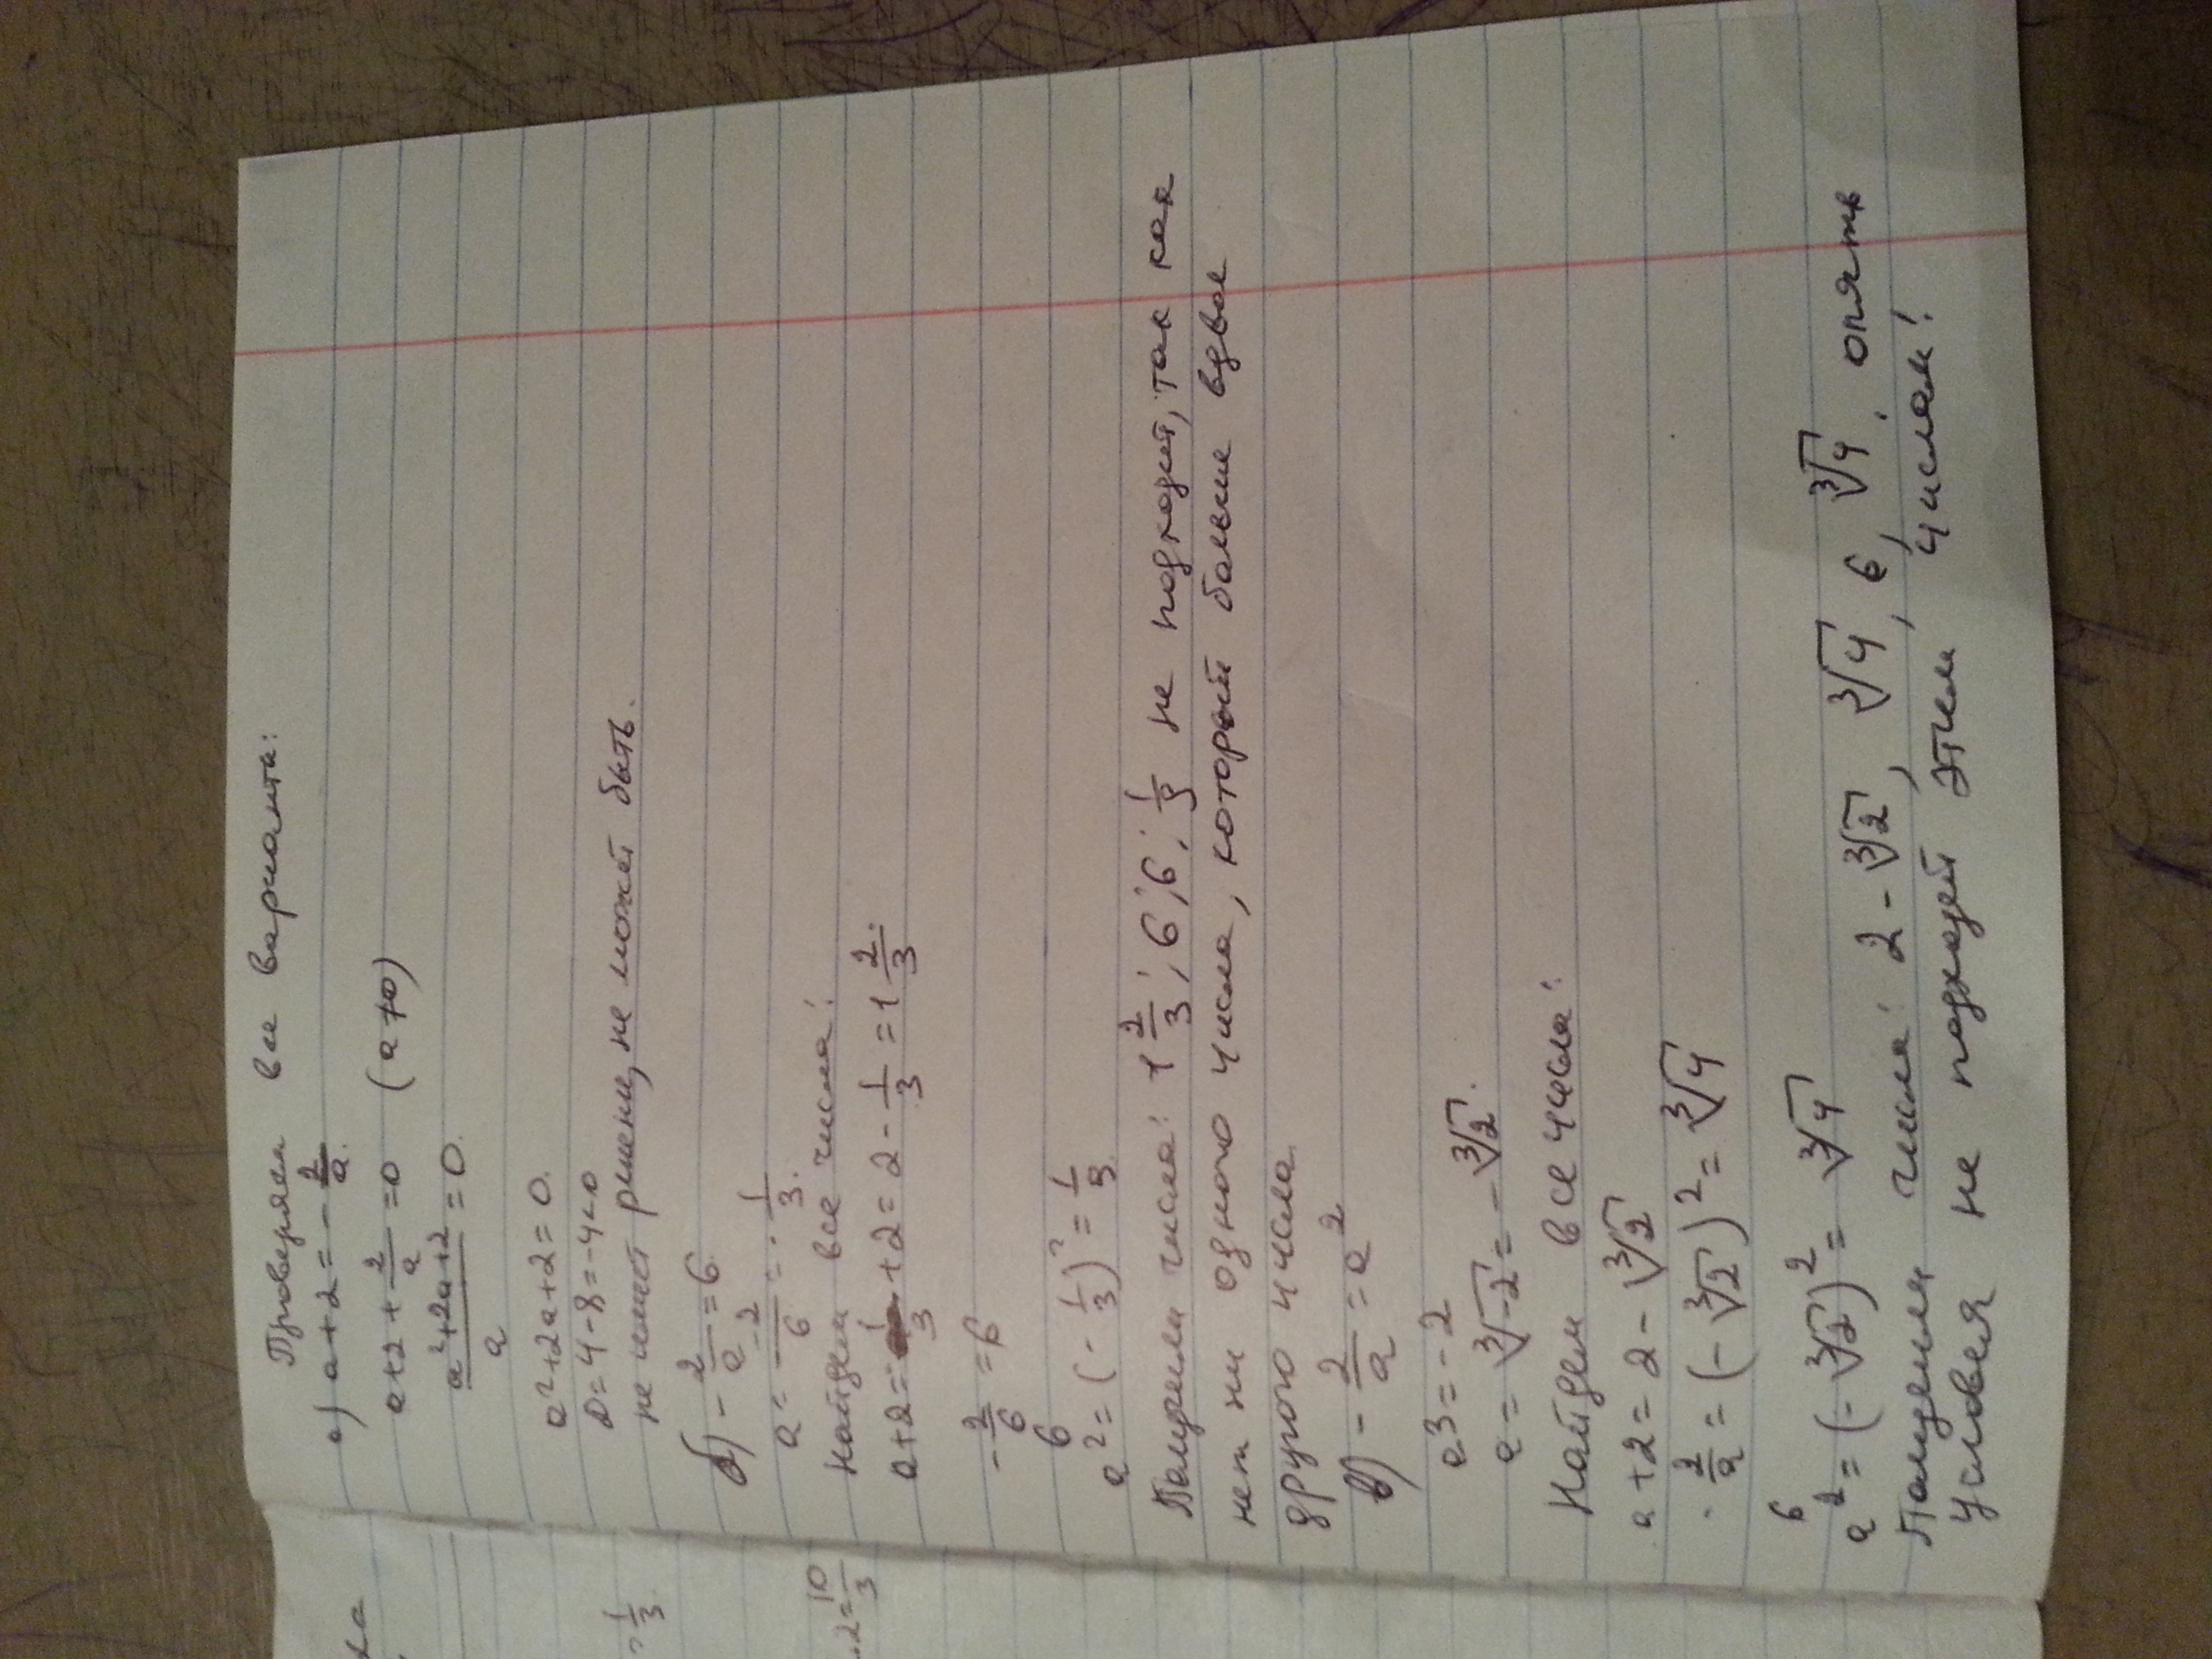 Проверяем все варианты:
а) a+2=-2/a.
a+2+2/a=0 (a≠0)
(a²+2a+2)/a=0.
a²+2a+2=0.
D=4-8=-4<0
не имеет решени, не может быть.
б) -2/a=6.
a=-2/6=-1/3.
Найдем все числа:
a+2=-1/3+2=2-1/3=1 2/3.
-2/a=6
6
a²=(-1/3)²=1/9
Получили числа: 1 2/3; 6; 6; 1/9 не подходит, так как
нет ни одного числа, который больше вдвое
другого числа.
в) -2/a=a²
a³=-2
a=∛-2=-∛2.
Найдем все числа:
a+2=2-∛2
-2/a=(-∛2)²=∛4
6
a²=(-∛2)²=∛4
Получили числа: 2-∛2, ∛4, 6, ∛4, опять
условия не подходят этим числам!
ла
-1/3.
.2=10/3